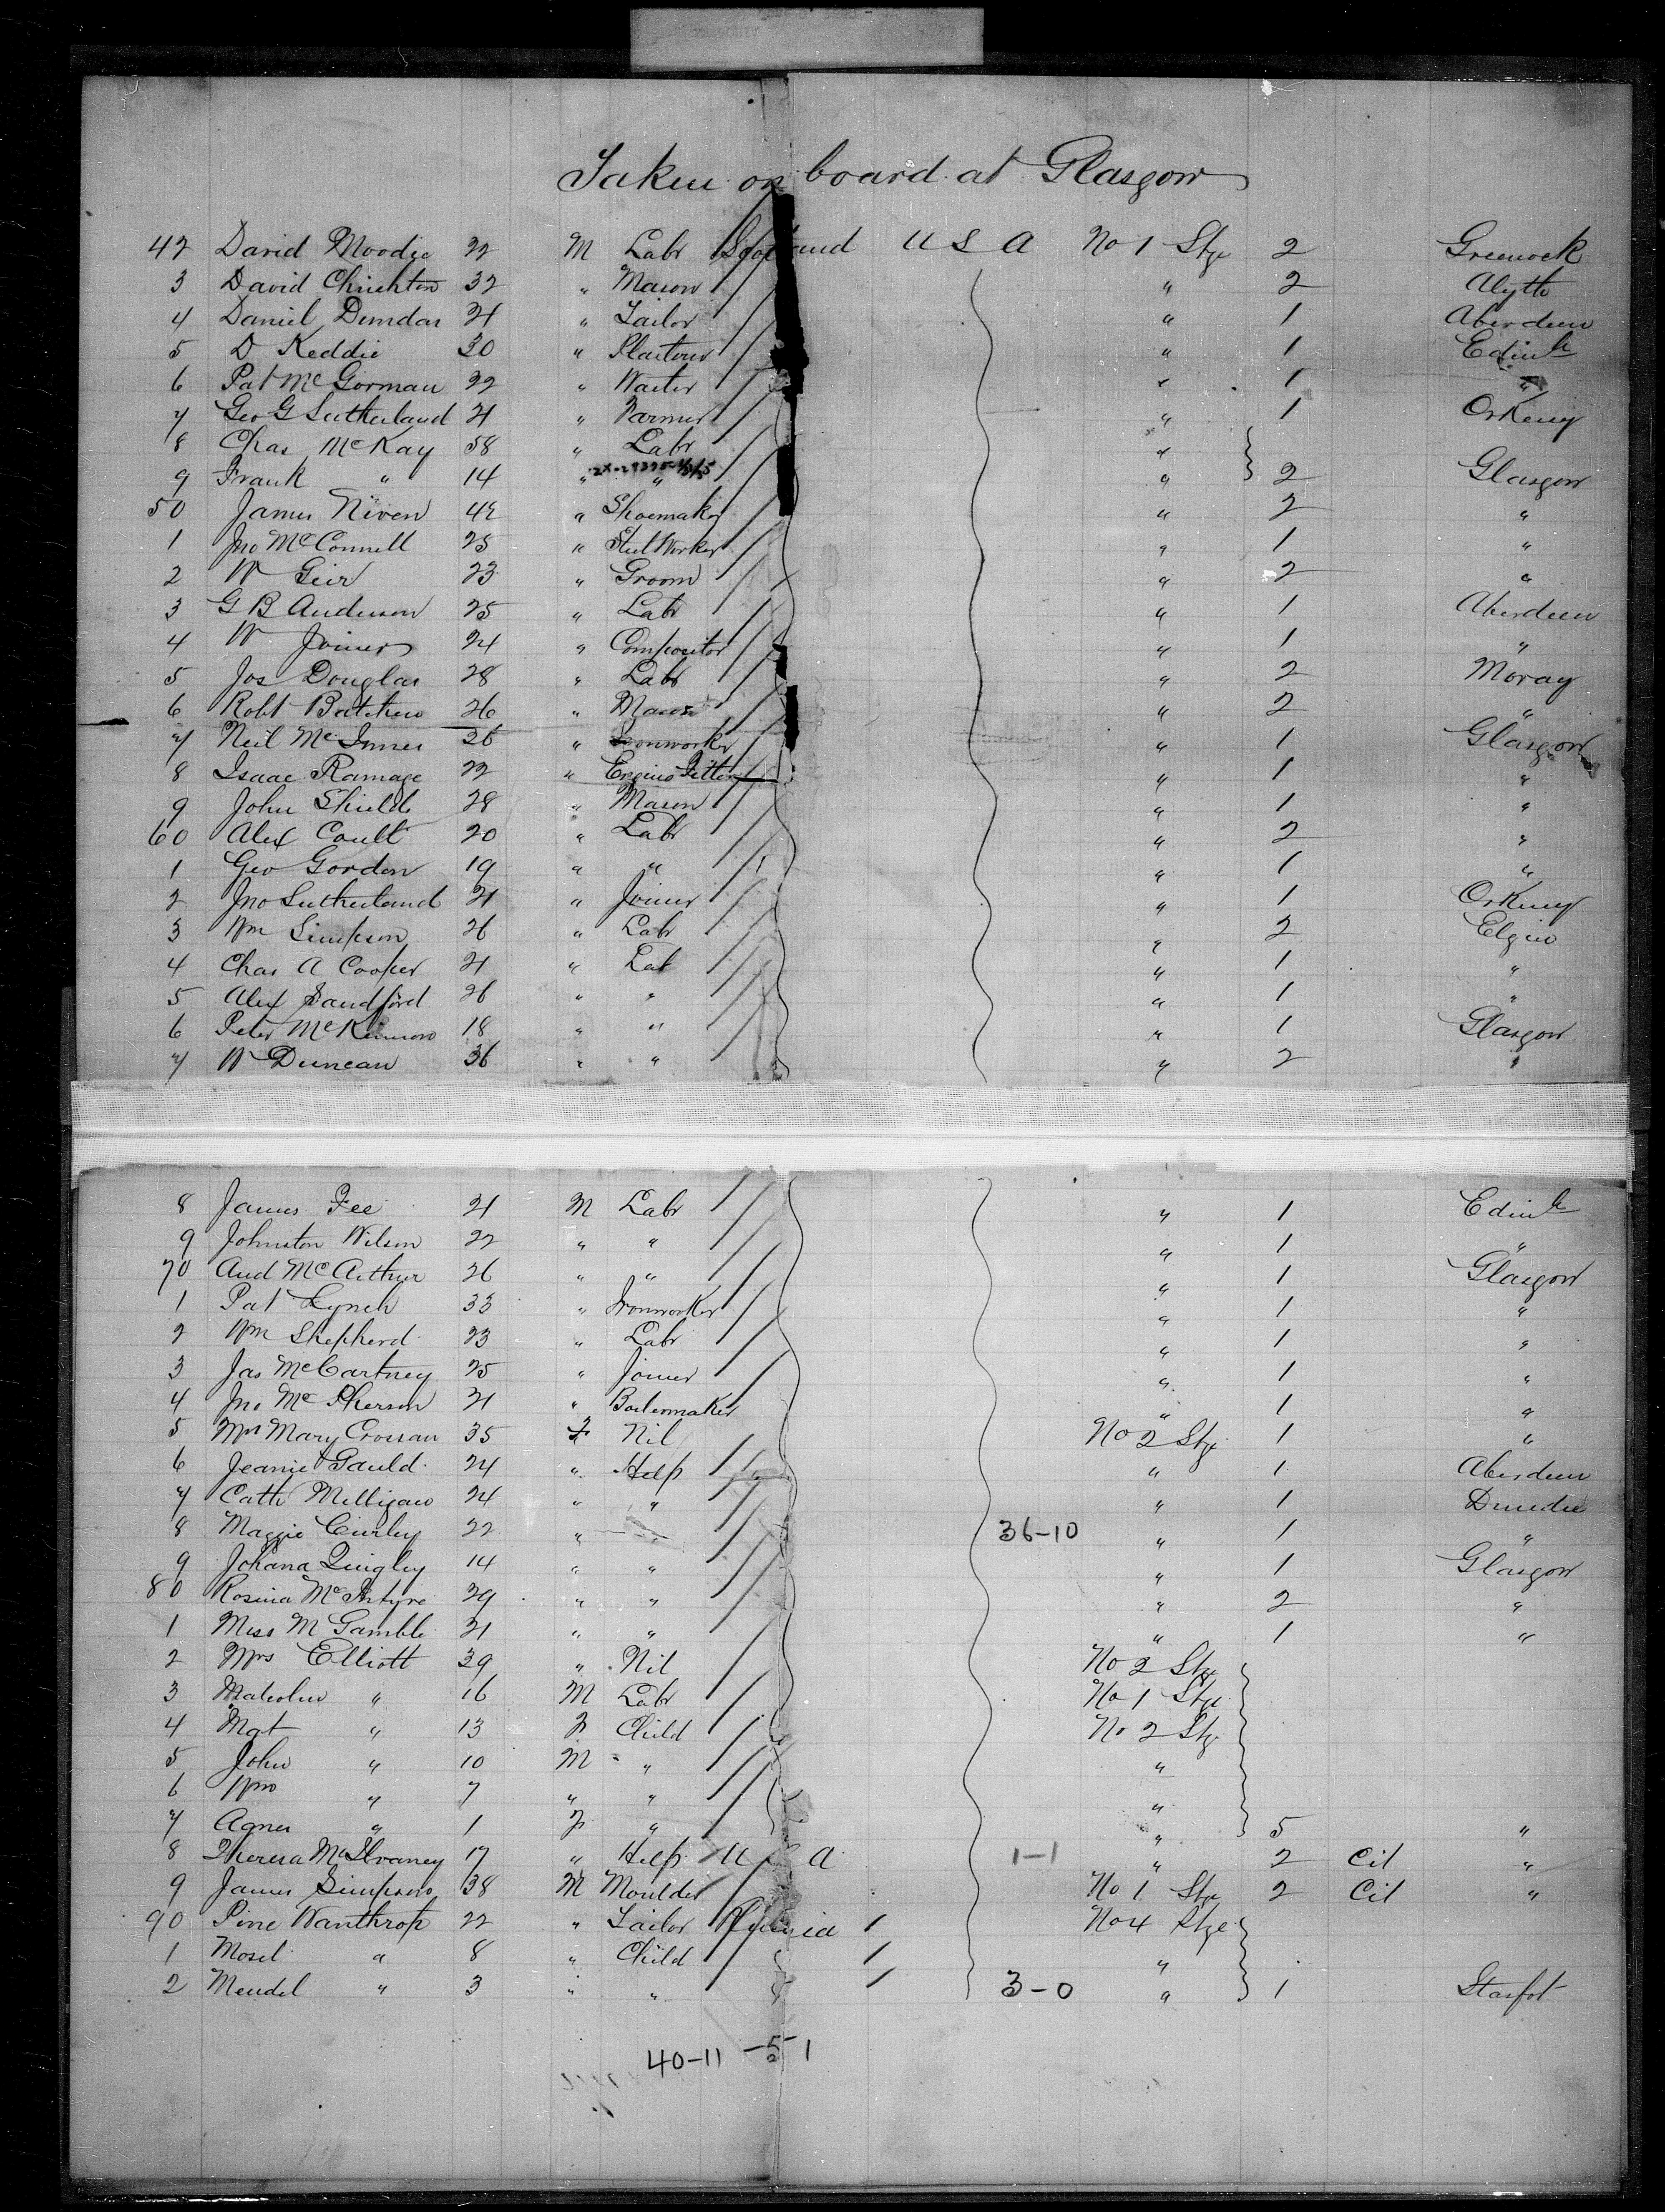 Taken on board at Glasgow
42 David Moodie 22 M Labr Scotland U S A No 1 Stge 2 Greenock
3 David Chrichton 32 " Mason " 2 Alyth
4 Daniel Dundas 21 " Tailor " 1 Aberdeen
5 D Keddie 30 " " 1 Edinh
6 Pat McGorman 22 " Waiter " 1 "
7 Geo G Sutherland 21 " Farmer " 1 Orkney
8 Chas McKay 58 " Labr "
9 Frank " 14 " " " 2 Glasgow
50 James Niven 42 " Shoemaker " 2 "
1 Jno McConnell 25 " Steel Worker " 1 "
2 W Geir 23 " Groom " 2 "
3 G B Anderson 25 " Labr " 1 Aberdeen
4 W Joiner 24 " Compositor " 1 "
5 Jos Douglas 28 " Labr " 2 Moray
6 Robt 26 " Mason " 2 "
7 Neil McInnes 26 " Ironworker " 1 Glasgow
8 Isaac Ramage 22 " Engine Fitter " 1 "
9 John Shield 28 " Mason " 1 "
60 Alex Coult 20 " Labr " 2 "
1 Geo Gordon 19 " " " 1 "
2 Jno Sutherland 21 " Joiner " 1 Orkney
3 Wm Simpson 26 " Labr " 2 Elgin
4 Chas A Cooper 21 " Lab " 1 "
5 Alex Sandford 26 " " " 1 "
6 Peter McKinnon 18 " " " 1 Glasgow
7 W Duncan 36 " " " 2 "
8 James Fee 21 M Labr " 1 Edinh
9 Johnston Wilson 22 " " " 1 "
70 And McArthur 26 " " " 1 Glasgow
1 Pat Lynch 33 " Ironworker " 1 "
2 Wm Shepherd 23 " Labr " 1 "
3 Jas McCartney 25 " Joiner " 1 "
4 Jno McPherson 21 " Boilermaker " 1 "
5 Mrs Mary Crossan 35 F Nil No 2 Stge 1 "
6 Jeanie Gauld 24 " Help " 1 Aberdeen
7 Cath Milligan 24 " " " 1 Dundee
8 Maggie Curley 22 " " 36-10 " 1 "
9 Johana Quigley 14 " " " 1 Glasgow
80 Rosina McIntyre 29 " " " 2 "
1 Miss M Gamble 21 " " " 1 "
2 Mrs Elliott 39 " Nil No 2 Stge
3 Malcolm " 16 M Labr No 1 Stge
4 Mgt " 13 F Child No 2 Stge
5 John " 10 M " "
6 Wm " 7 " " "
7 Agnes " 1 F " " 5 "
8 Theresa McIlvaney 17 " Help U S A 1-1 " 2 Cit "
9 James Simpson 38 M Moulder No 1 Stge 2 Cit "
90 Pine Wanthrop 22 " Tailor 1 No 4 Stge
1 Mosel " 8 " Child 1 "
2 Mendel " 3 " " 1 3-0 " 1
40-11 -5 1